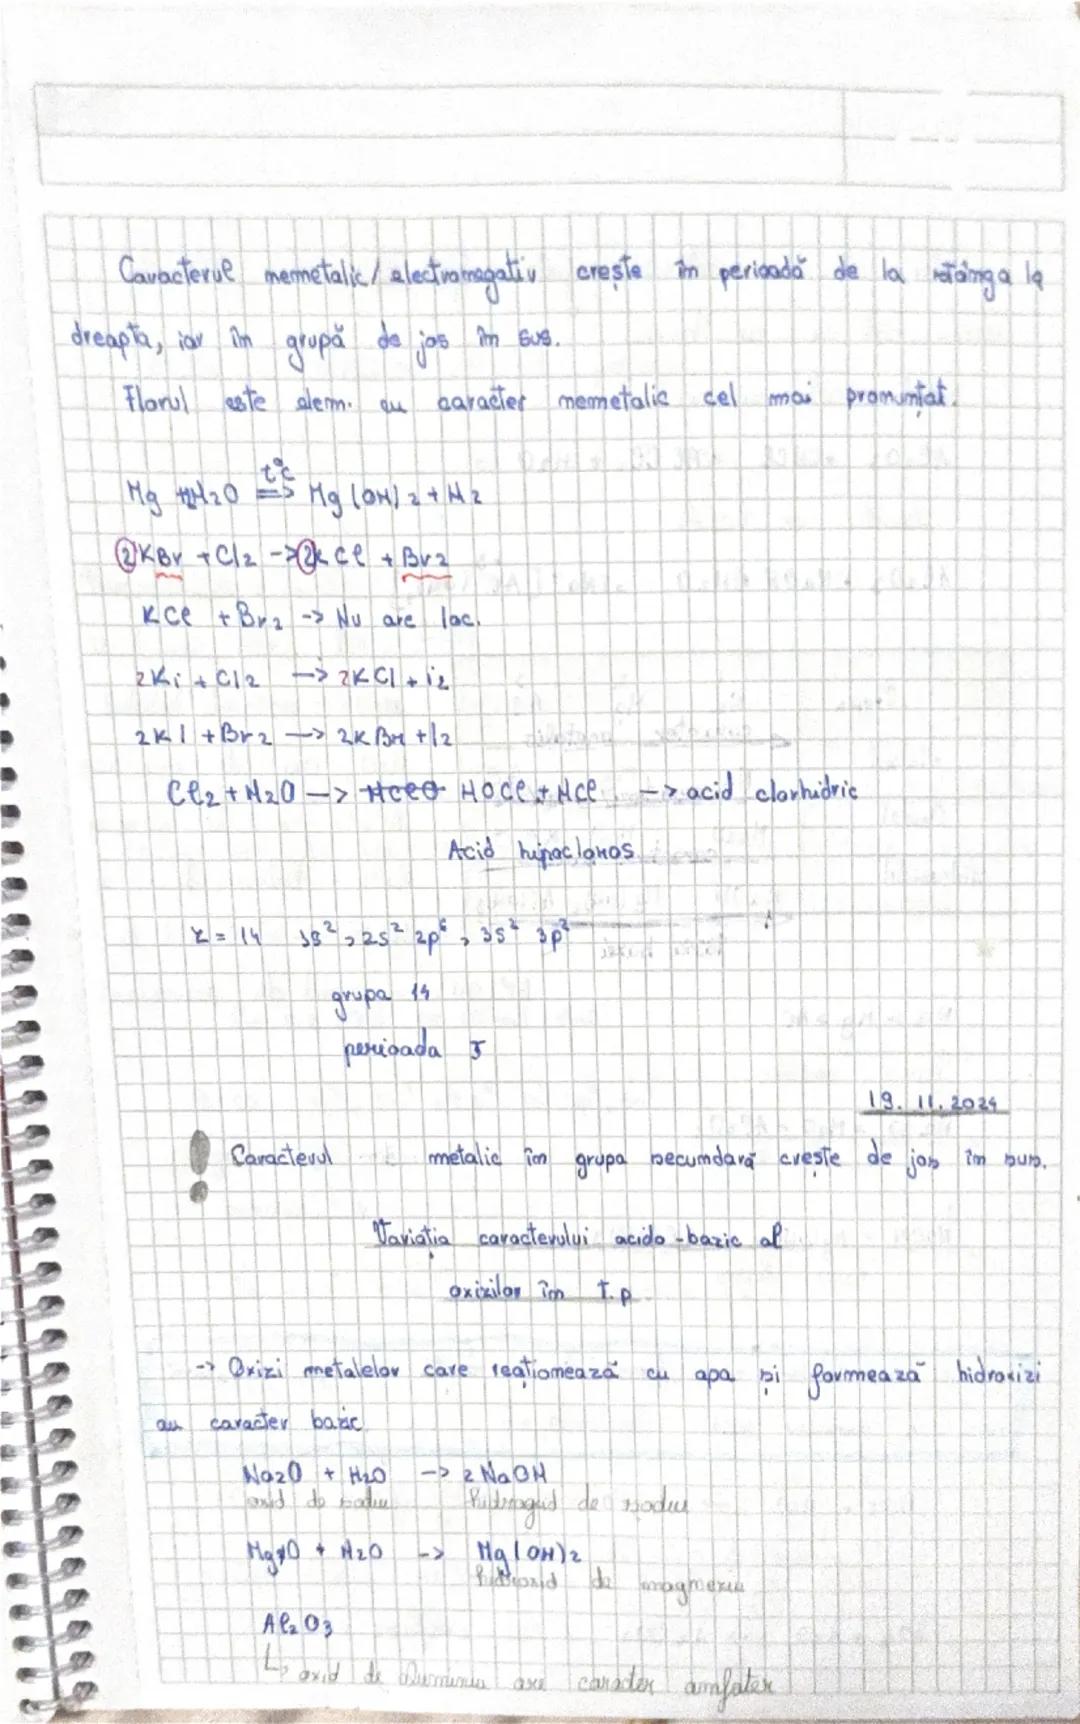 Caracterul nemetalic/electronegativ crește în perioadă de la stânga la
dreapta, iar în grupă de jos în sus.
Florul este elem. cu caracter nemetalic cel mai pronunțat.
Mg + H2O t°C => Mg(OH)2 + H2
2KBr + Cl2 -> 2KCl + Br2
KCl + Br2 -> Nu are loc.
2Ki + Cl2 -> 2KCl + i2
2KI + Br2 -> 2KBr + I2
Cl2 + H2O -> HClO HOCl + HCl -> acid clorhidric
Acid hipocloros
Z = 14 1s², 2s² 2p⁶, 3s² 3p²
grupa 14
perioada 3
19. 11. 2024
Caracterul metalic în grupa secundară crește de jos în sus.
Variația caracterului acido-bazic al
oxizilor în T.p
-> Oxizi metalelor care reaționează cu apa și formează hidroxizi
au caracter bazic
Na2O + H2O -> 2 NaOH
oxid de sodiu hidrogid de sodiu
MgO + H2O -> Mg(OH)2
hidroxid de magneziu
Al2O3
↳ oxid de aluminiu are caracter amfoter